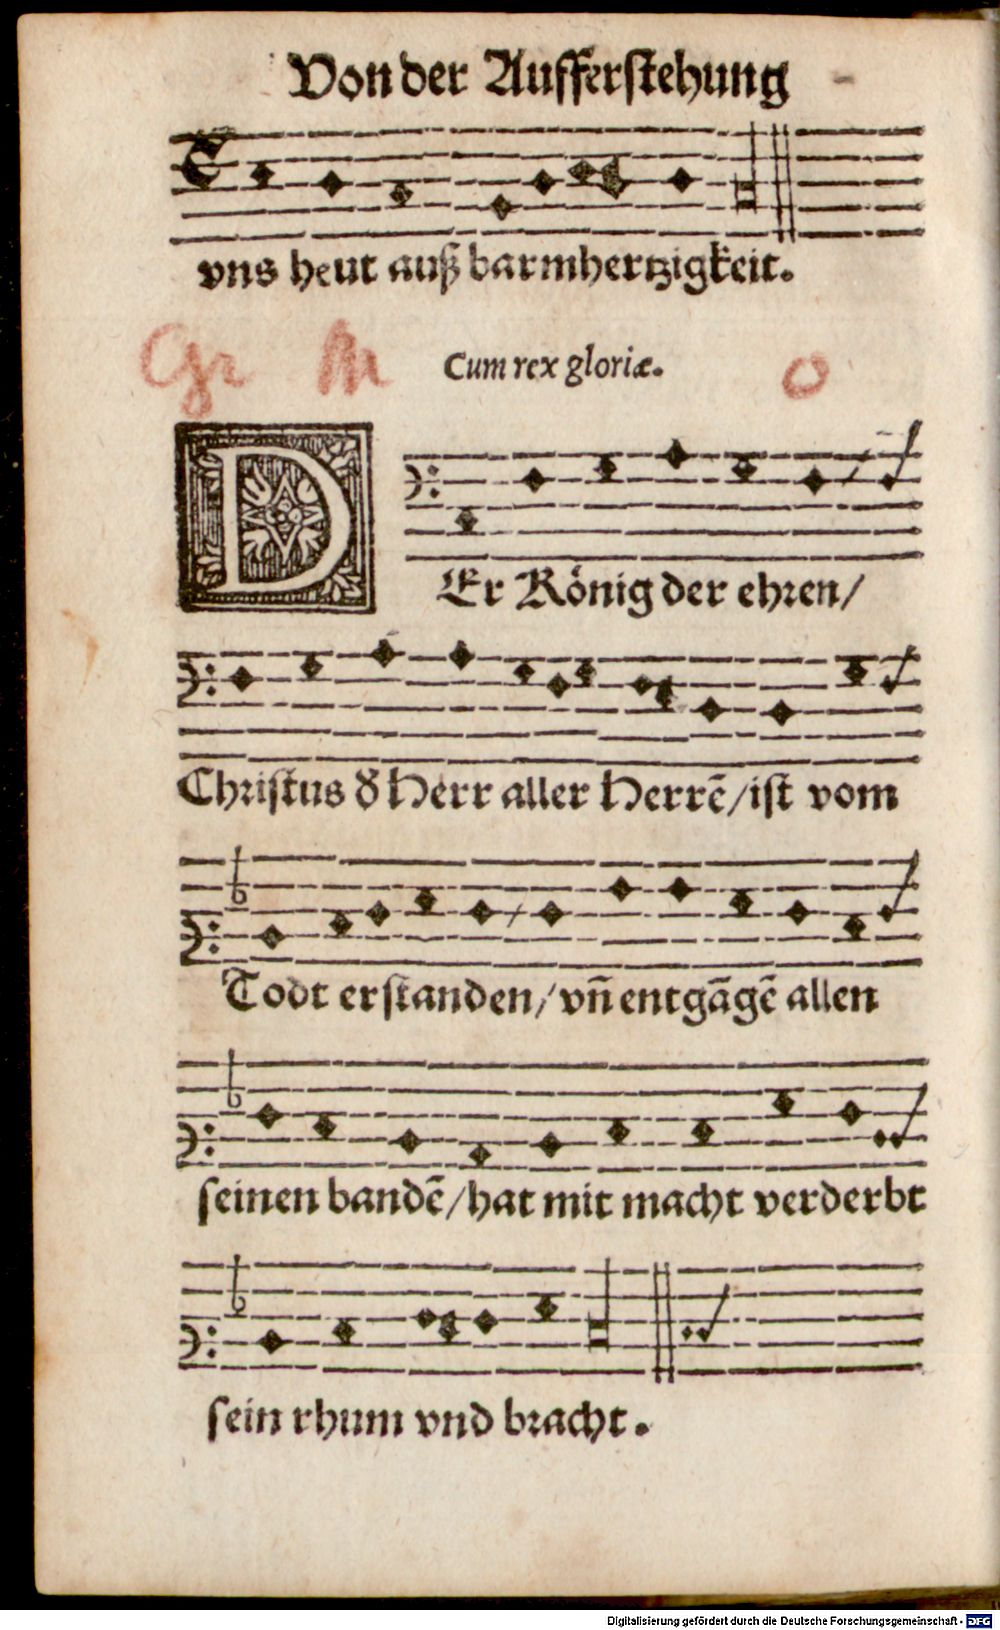 Von der Aufferstehung
vns heut auß barmhertzigkeit.
Gr
Cum rex gloriæ.
O
DEr König der ehren/
Christus d Herr aller Herrē/ist vom
Todt erstanden/vn̄ entgāgē allen
seinen bandē/hat mit macht verderbt
sein rhum vnd bracht.
Digitalisierung gefördert durch die Deutsche Forschungsgemeinschaft - DFG